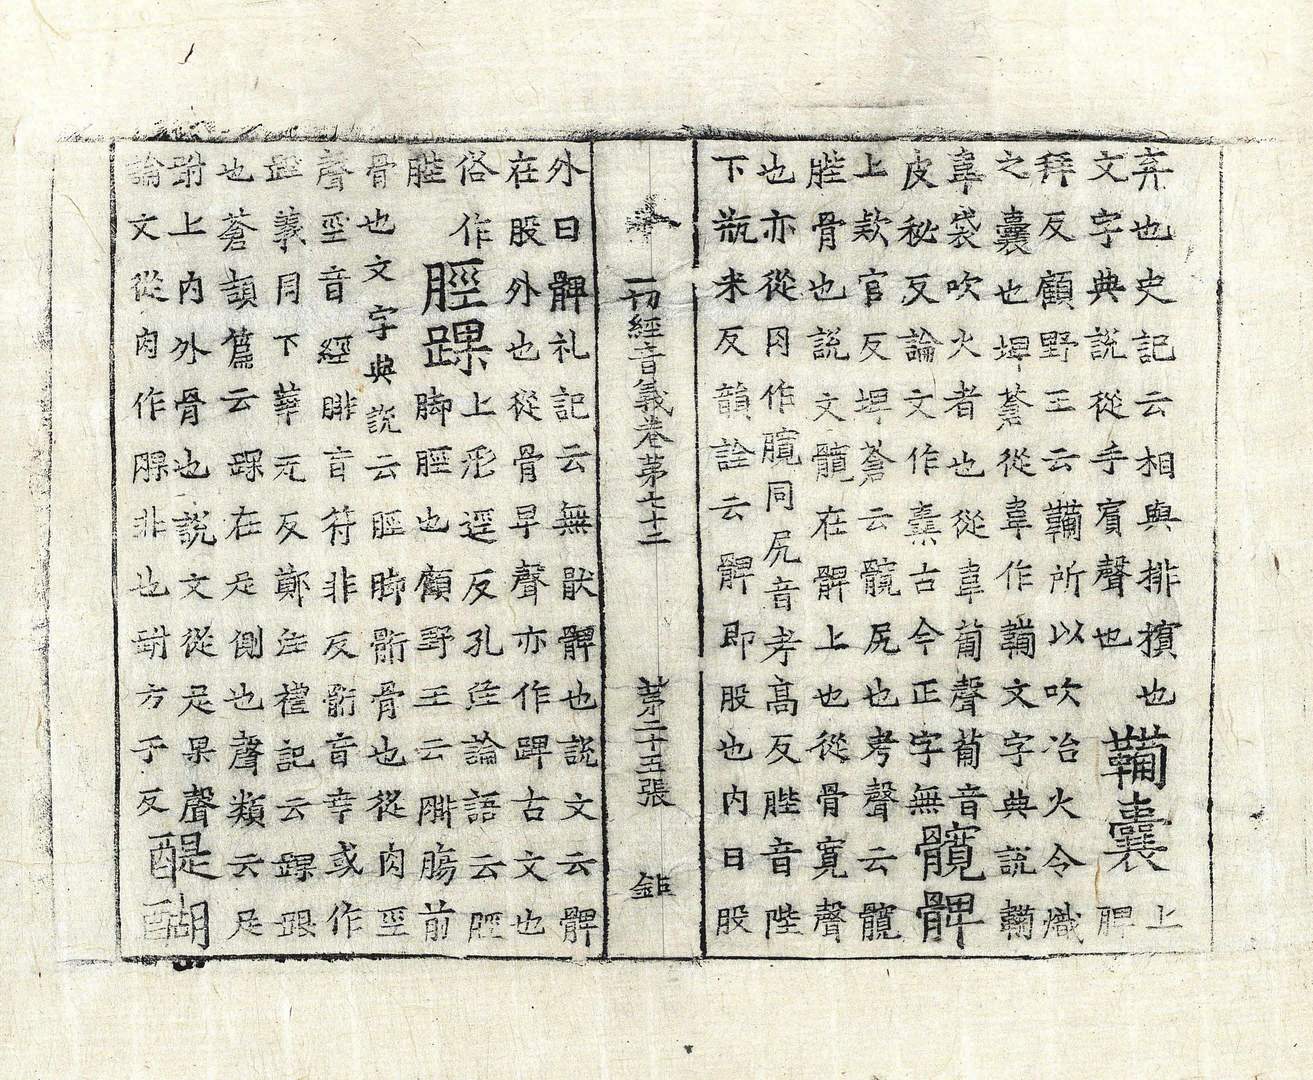 弃也史記云相與排擯也鞴囊上
文字典說從手賓聲也　　　𦝫
拜反顧野王云鞴所以吹冶火令熾
之囊也埤蒼從韋作韛文字典說韛
韋袋吹火者也從韋𤰇聲𤰇音
皮秘反論文作橐古今正字無髖髀
上款官反埤蒼云髖尻也考聲云髖
䏶骨也說文髖在髀上也從骨寬聲
也亦從肉作臗同尻音考高反䏶音陛
下瓶米反韻詮云髀即股也內曰股
一切經音義卷第七十二　第二十五張　鉅
外曰髀礼記云無猒髀也說文云髀
在股外也從骨卑聲亦作踔古文也
俗作脛踝上形逕反孔注論語云脛
䏶　　脚脛也顧野王云腓腸前
骨也文字典說云脛脚䯒骨也從肉巠
聲巠音經腓音符非反䯒音幸或作
踁義同下華瓦反鄭注禮記云踝跟
也蒼頡篇云踝在足側也聲類云足
跗上內外骨也說文從足果聲醍醐
論文從肉作腂非也跗方于反